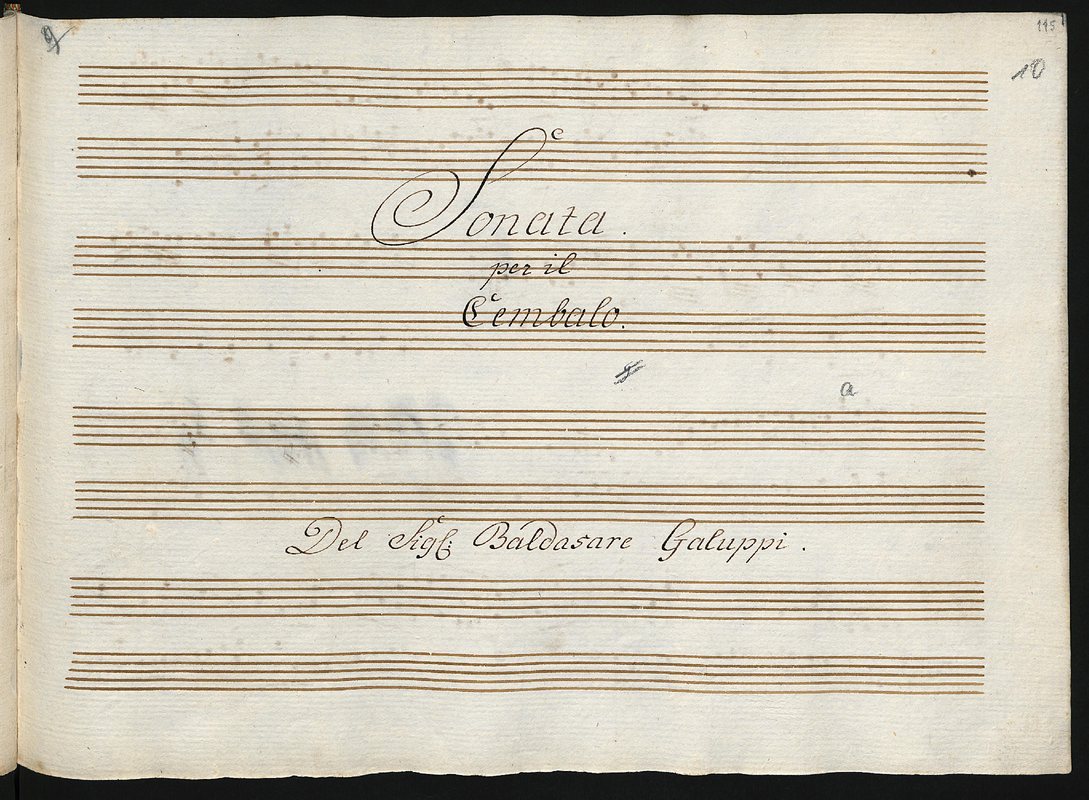 115
10
Sonata.
per il
Cembalo.
a
Del Sigl: Baldasare Galuppi.